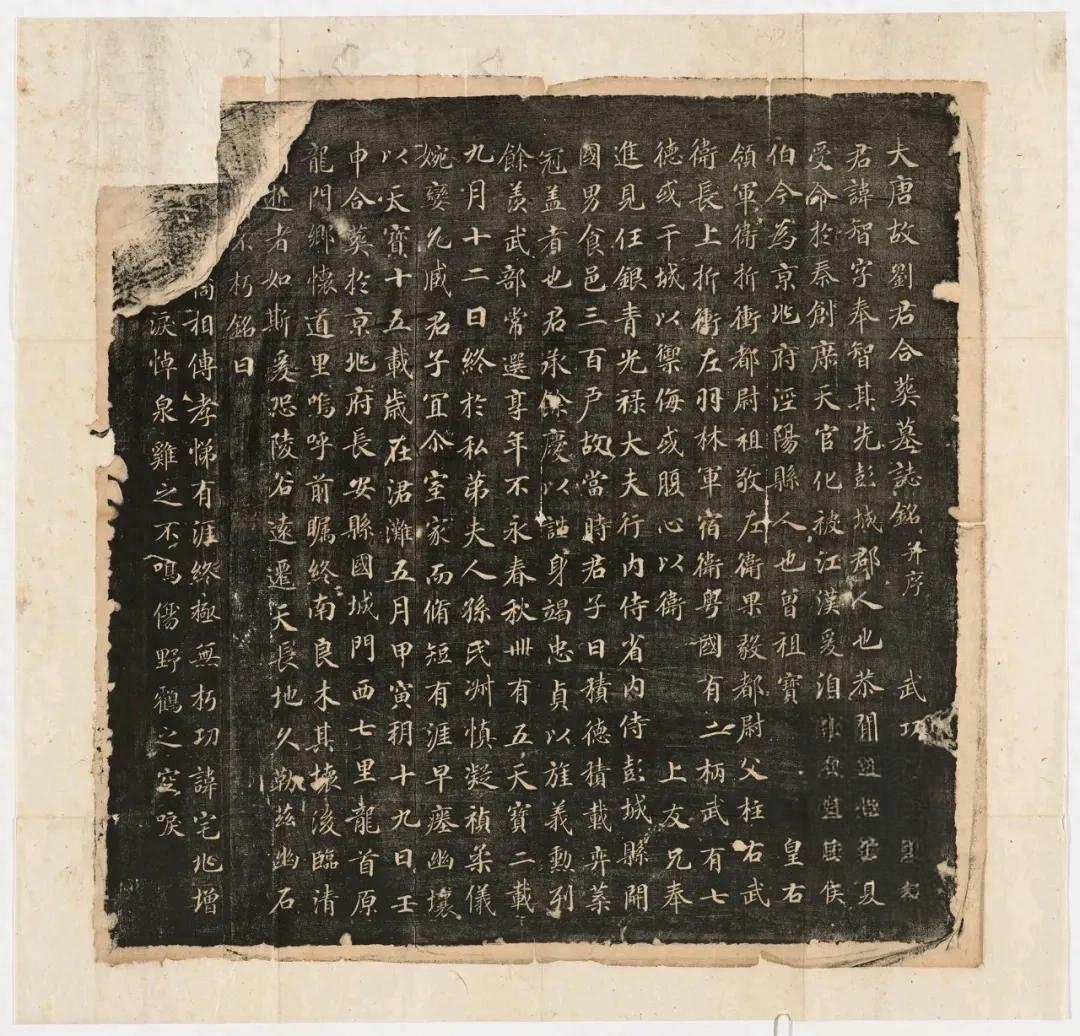 大唐故劉君合葬墓誌銘并序 武功
君諱智字奉智其先彭城郡人也恭聞夏
受命於秦創庶天官化被江漢爰洎侯
伯今爲京兆府涇陽縣人也曾祖寶 皇右
領軍衛折衝都尉祖敬左衛果毅都尉父柱右武
衛長上折衝左羽林軍宿衛粤國有二柄武有七
德或干城以禦侮或腹心以衛 上友兄奉
進見任銀青光禄大夫行内侍省内侍彭城縣開
國男食邑三百戶故當時君子曰積德積載弈葉
冠盖者也君承餘慶以謹身竭忠貞以旌義勳列
餘羡武部常選享年不永春秋卌有五天寶二載
九月十二日終於私第夫人孫氏淑慎凝禎柔儀
婉孌允臧君子宜尒室家而脩短有涯早瘞幽壤
以天寶十五載歲在涒灘五月甲寅朔十九日壬
申合葬於京兆府長安縣國城門西七里龍首原
龍門鄉懷道里嗚呼前矚終南良木其壞後臨清
逝者如斯爰恐陵谷遠遷天長地久勒兹幽石
不朽銘曰
相傳孝悌有涯終極無朽功諱宅兆增
淚悼泉雞之不鳴傷野鶴之空唳